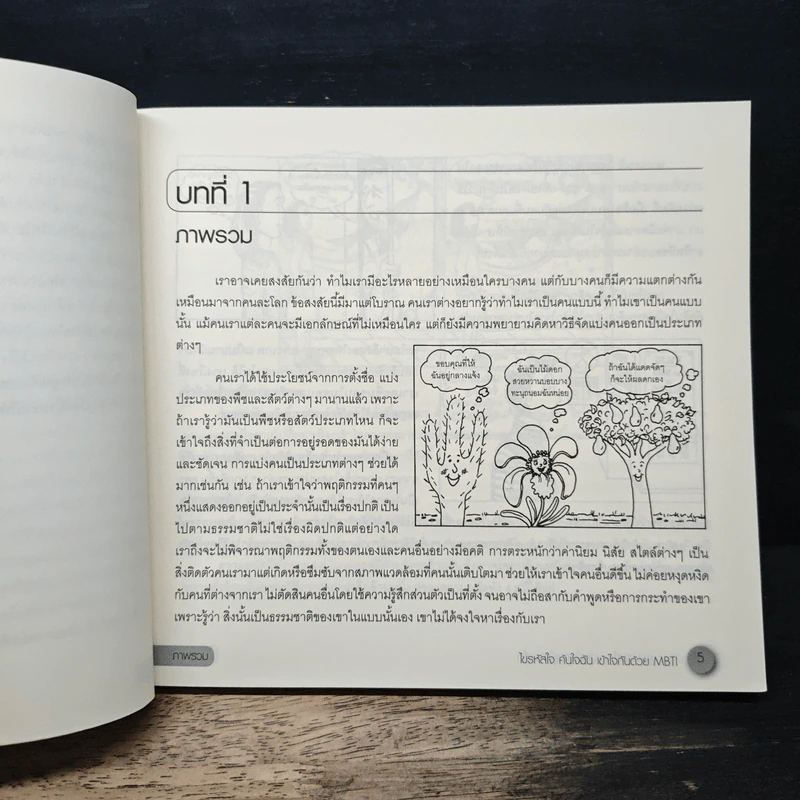 บทที่ 1
ภาพรวม
เราอาจเคยสงสัยกันว่า ทำไมเรามีอะไรหลายอย่างเหมือนใครบางคน แต่กับบางคนก็มีความแตกต่างกัน
เหมือนมาจากคนละโลก ข้อสงสัยนี้มีมาแต่โบราณ คนเราต่างอยากรู้ว่าทำไมเราเป็นคนแบบนี้ ทำไมเขาเป็นคนแบบ
นั้น แม้คนเราแต่ละคนจะมีเอกลักษณ์ที่ไม่เหมือนใคร แต่ก็ยังมีความพยายามคิดหาวิธีจัดแบ่งคนออกเป็นประเภท
ต่างๆ
คนเราได้ใช้ประโยชน์จากการตั้งชื่อ แบ่ง
ประเภทของพืชและสัตว์ต่างๆ มานานแล้ว เพราะ
ถ้าเรารู้ว่ามันเป็นพืชหรือสัตว์ประเภทไหน ก็จะ
เข้าใจถึงสิ่งที่จำเป็นต่อการอยู่รอดของมันได้ง่าย
และชัดเจน การแบ่งคนเป็นประเภทต่างๆ ช่วยได้
มากเช่นกัน เช่น ถ้าเราเข้าใจว่าพฤติกรรมที่คนๆ
หนึ่งแสดงออกอยู่เป็นประจำนั้นเป็นเรื่องปกติ เป็น
ไปตามธรรมชาติไม่ใช่เรื่องผิดปกติแต่อย่างใด
เราถึงจะไม่พิจารณาพฤติกรรมทั้งของตนเองและคนอื่นอย่างมีอคติ การตระหนักว่าค่านิยม นิสัย สไตล์ต่างๆ เป็น
สิ่งติดตัวคนเรามาแต่เกิดหรือซึมซับจากสภาพแวดล้อมที่คนนั้นเติบโตมา ช่วยให้เราเข้าใจคนอื่นดีขึ้น ไม่ค่อยหงุดหงิด
กับคนที่ต่างจากเรา ไม่ตัดสินคนอื่นโดยใช้ความรู้สึกส่วนตัวเป็นที่ตั้ง จนอาจไม่ถือสากับคำพูดหรือการกระทำของเขา
เพราะรู้ว่า สิ่งนั้นเป็นธรรมชาติของเขาในแบบนั้นเอง เขาไม่ได้จงใจหาเรื่องกับเรา
ขอบคุณที่ให้
ฉันอยู่กลางแจ้ง
ฉันเป็นไม้ดอก
สวยหวานบอบบาง
ทะนุถนอมฉันหน่อย
ถ้าฉันได้แดดจัดๆ
ก็จะให้ผลดกเอง
ภาพรวม
ไขรหัสใจ ค้นใจฉัน เข้าใจกันด้วย MBTI
5